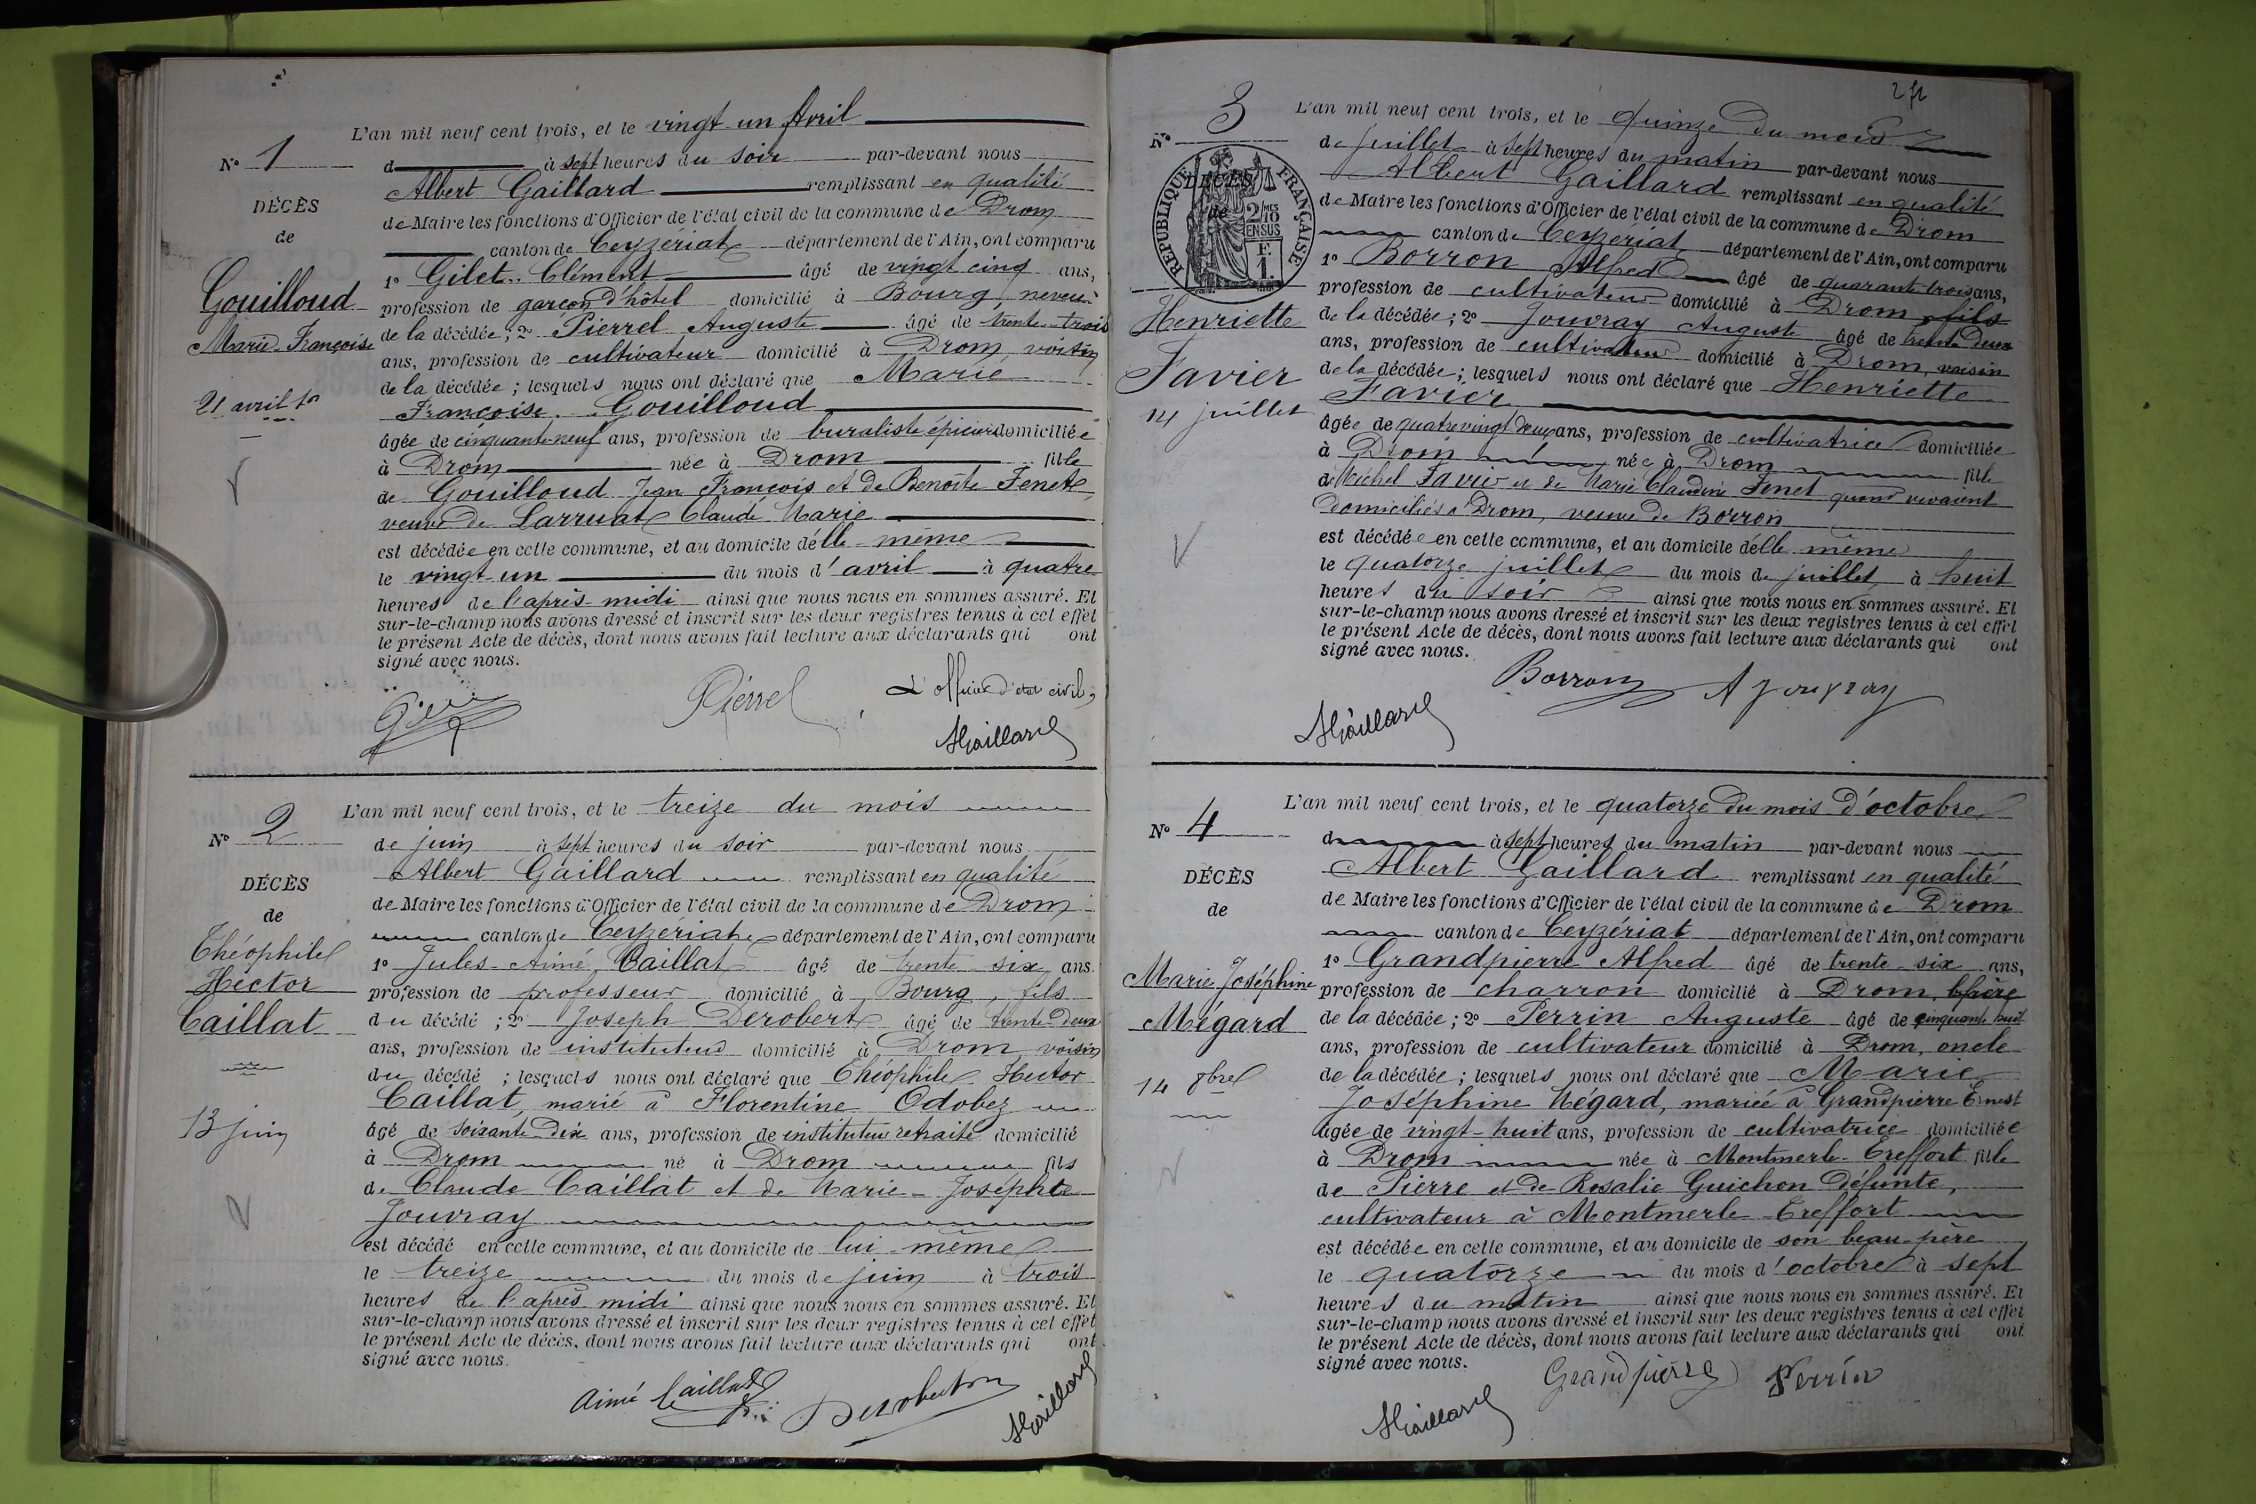 L'an mil neuf cent trois, et le vingt-un Avril
N° 1
d à sept heures du soir par-devant nous
Albert Gaillard remplissant en qualité
DÉCÈS
de Maire les fonctions d'Officier de l'état civil de la commune de Drom
de
canton de Ceyzériat département de l'Ain, ont comparu
1° Gilet Clément âgé de vingt cinq ans,
Gouilloud
profession de garçon d'hôtel domicilié à Bourg, neveu
Marie-Françoise
de la décédée; 2° Pierrel Auguste âgé de trente-trois
ans, profession de cultivateur domicilié à Drom, voisin
de la décédée; lesquels nous ont déclaré que Marie
21 avril
Françoise Gouilloud
âgée de cinquante-neuf ans, profession de buraliste épicier domiciliée
à Drom née à Drom fille
de Gouilloud Jean François et de Benoîte Fenet
veuve de Larruat Claude Marie
est décédée en cette commune, et au domicile d'elle-même
le vingt-un du mois d'avril à quatre
heures de l'après-midi ainsi que nous nous en sommes assuré. Et
sur-le-champ nous avons dressé et inscrit sur les deux registres tenus à cet effet
le présent Acte de décès, dont nous avons fait lecture aux déclarants qui ont
signé avec nous.
Pierrel L'officier d'état civil,
AGaillard
L'an mil neuf cent trois, et le treize du mois
N° 2
de juin à sept heures du soir par-devant nous
Albert Gaillard remplissant en qualité
DÉCÈS
de Maire les fonctions d'Officier de l'état civil de la commune de Drom
de
canton de Ceyzériat département de l'Ain, ont comparu
Théophile
Hector
Caillat
1° Jules-Aimé Caillat âgé de trente-six ans,
profession de professeur domicilié à Bourg, fils
du décédé; 2° Joseph Derobert âgé de trente-deux
ans, profession de instituteur domicilié à Drom, voisin
du décédé; lesquels nous ont déclaré que Théophile Hector
Caillat, marié à Florentine Odobez
13 juin
âgé de soixante-dix ans, profession de instituteur retraité domicilié
à Drom né à Drom fils
de Claude Caillat et de Marie-Josephte
Jouvray
est décédé en cette commune, et au domicile de lui-même
le treize du mois de juin à trois
heures de l'après-midi ainsi que nous nous en sommes assuré. Et
sur-le-champ nous avons dressé et inscrit sur les deux registres tenus à cet effet
le présent Acte de décès, dont nous avons fait lecture aux déclarants qui ont
signé avec nous.
Aimé Caillat Derobert AGaillard
L'an mil neuf cent trois, et le quinze du mois
N° 3
de juillet à sept heures du matin par-devant nous
Albert Gaillard remplissant en qualité
DÉCÈS
de
RÉPUBLIQUE FRANÇAISE
2/10 EN SUS
F. 1.
de Maire les fonctions d'Officier de l'état civil de la commune de Drom
canton de Ceyzériat département de l'Ain, ont comparu
1° Borron Alfred âgé de quarante-trois ans,
profession de cultivateur domicilié à Drom, fils
Henriette
Favier
de la décédée; 2° Jouvray Auguste âgé de trente deux
ans, profession de cultivateur domicilié à Drom, voisin
de la décédée; lesquels nous ont déclaré que Henriette
14 juillet
Favier
âgée de quatre vingt deux ans, profession de cultivatrice domiciliée
à Drom née à Drom fille
de Michel Favier et de Marie Claudine Fenet quand vivaient
domiciliés à Drom, veuve de Borron
est décédée en cette commune, et au domicile d'elle même
le quatorze juillet du mois de juillet à huit
heures du soir ainsi que nous nous en sommes assuré. Et
sur-le-champ nous avons dressé et inscrit sur les deux registres tenus à cet effet
le présent Acte de décès, dont nous avons fait lecture aux déclarants qui ont
signé avec nous.
Borron A Jouvray
AGaillard
L'an mil neuf cent trois, et le quatorze du mois d'octobre
N° 4
d à sept heures du matin par-devant nous
Albert Gaillard remplissant en qualité
DÉCÈS
de Maire les fonctions d'Officier de l'état civil de la commune de Drom
de
canton de Ceyzériat département de l'Ain, ont comparu
1° Grandpierre Alfred âgé de trente-six ans,
Marie Joséphine
Mégard
profession de charron domicilié à Drom, bfrère
de la décédée; 2° Perrin Auguste âgé de cinquante huit
ans, profession de cultivateur domicilié à Drom, oncle
14 8bre
de la décédée; lesquels nous ont déclaré que Marie
Joséphine Mégard, mariée à Grandpierre Ernest
âgée de vingt-huit ans, profession de cultivatrice domiciliée
à Drom née à Montmerle-Treffort fille
de Pierre et de Rosalie Guichon défunte,
cultivateur à Montmerle-Treffort
est décédée en cette commune, et au domicile de son beau-père
le quatorze du mois d'octobre à sept
heures du matin ainsi que nous nous en sommes assuré. Et
sur-le-champ nous avons dressé et inscrit sur les deux registres tenus à cet effet
le présent Acte de décès, dont nous avons fait lecture aux déclarants qui ont
signé avec nous.
Grandpierre Perrin
AGaillard